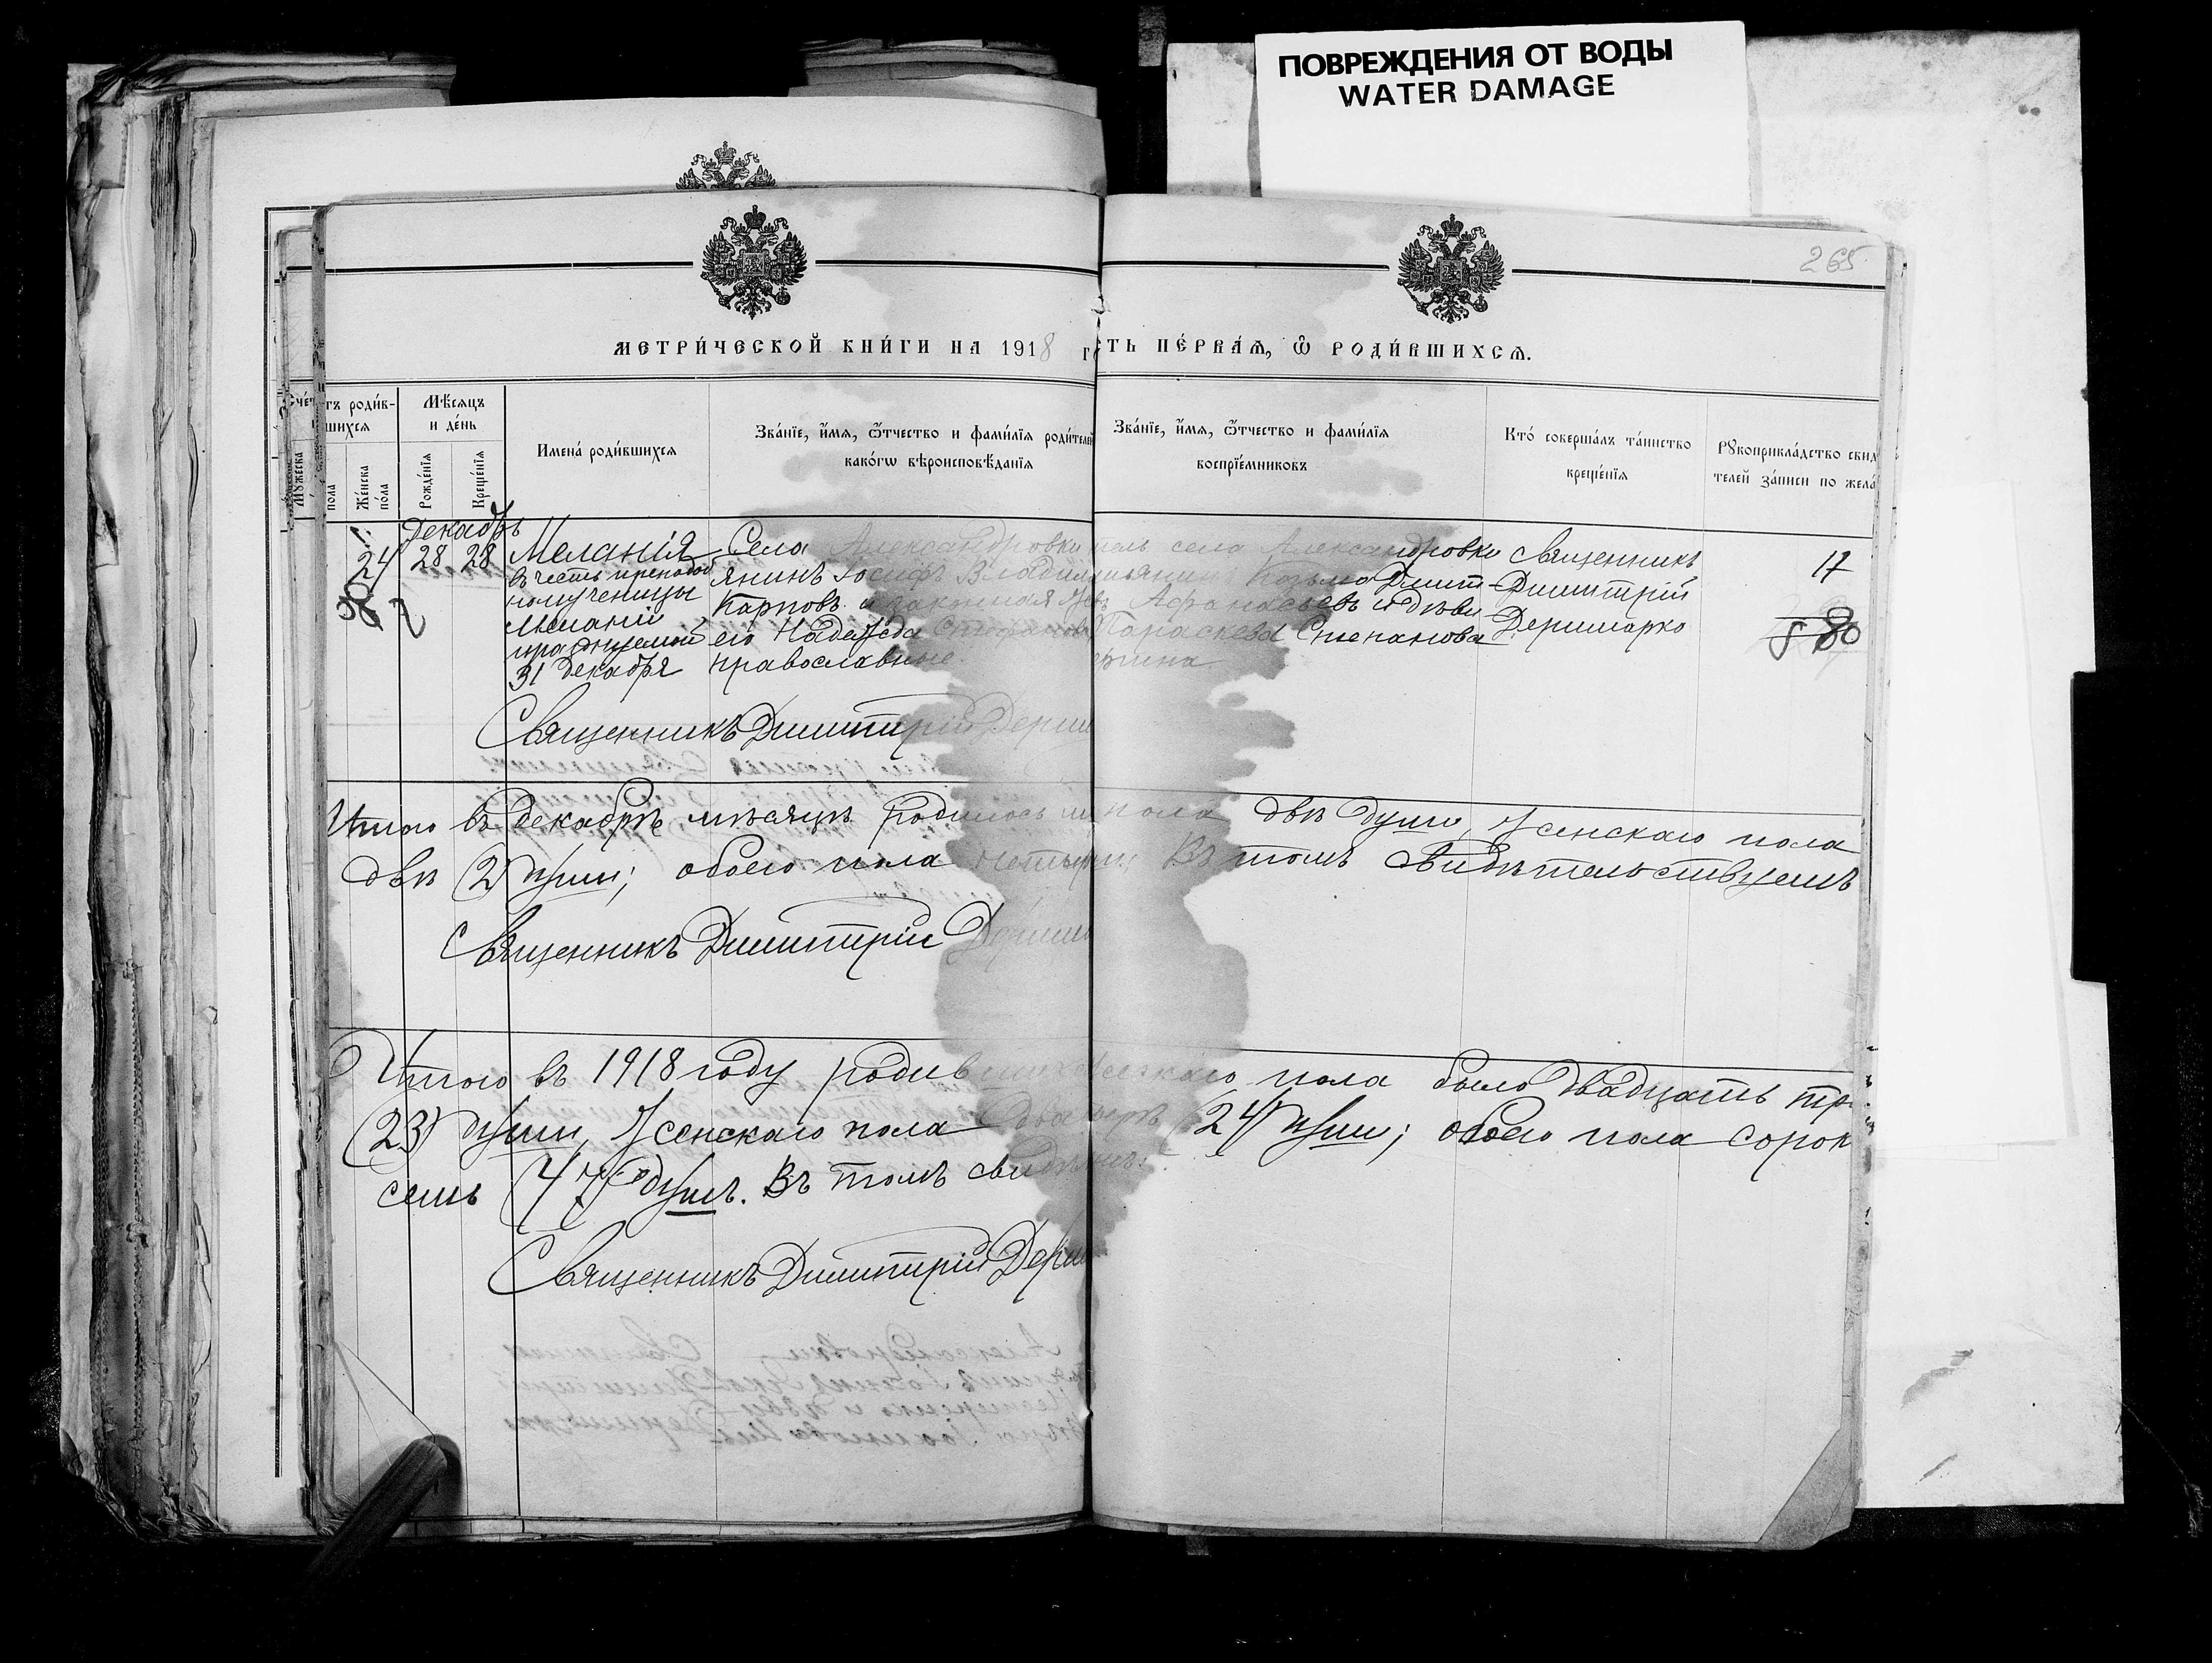 ПОВРЕЖДЕНИЯ ОТ ВОДЫ
WATER DAMAGE
265
МЕТРИ́ЧЕСКОЙ КНИ́ГИ НА 1918 г
СТЬ ПЕ́РВАѦ, Ѿ РОДИ́ВШИХСѦ.
Счет
тъ роди́в-
шихсѧ
Мѣ́сѧцъ
и де́нь
Мꙋжеска
пола
Же́нска
по́ла
Рожде́нїѧ
Креще́нїѧ
Имена́ роди́вшихсѧ
Зва́нїе, и́мѧ, ѻ́тчество и фами́лїѧ роди́телей
како́гѡ вѣроисповѣ́данїѧ
Зва́нїе, и́мѧ, ѻ́тчество и фами́лїѧ
воспрїе́мниковъ
Кто́ соверша́лъ та́инство
креще́нїѧ
Рꙋкоприкла́дство свид
телей за́писи по жела
Декабрь
24 28 28 Меланія
въ честь преподоб
номученицы
Меланіи
празднуемой
31 Декабря
Села Александровки
янинъ Іосифъ Владим
Карповъ и законная же
его Надежда Стефанов
православные
села Александровки
Козьма Дмит
Афанасьевъ и дѣви
Степанова
Священникъ
Димитрій
Дериmарко
17
80
Священникъ Димитрій Дерим
Итого въ Декабрѣ мѣсяцѣ родилось м пола двѣ души, женскаго пола
двѣ (2) души; обоего пола четыре. Въ томъ свидѣтельствуетъ
Священникъ Димитрій Дерим
Итого въ 1918 году родившихся пола было двадцать тр
(23) души, женскаго пола два (24) души; обоего пола сорок
семь (47) душъ. Въ томъ свидѣт
Священникъ Димитрій Дерим